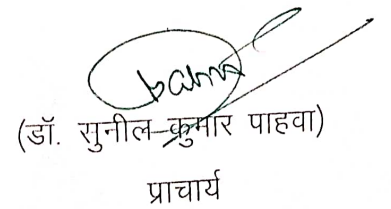 (डॉ. सुनील कुमार पाहवा)
प्राचार्य